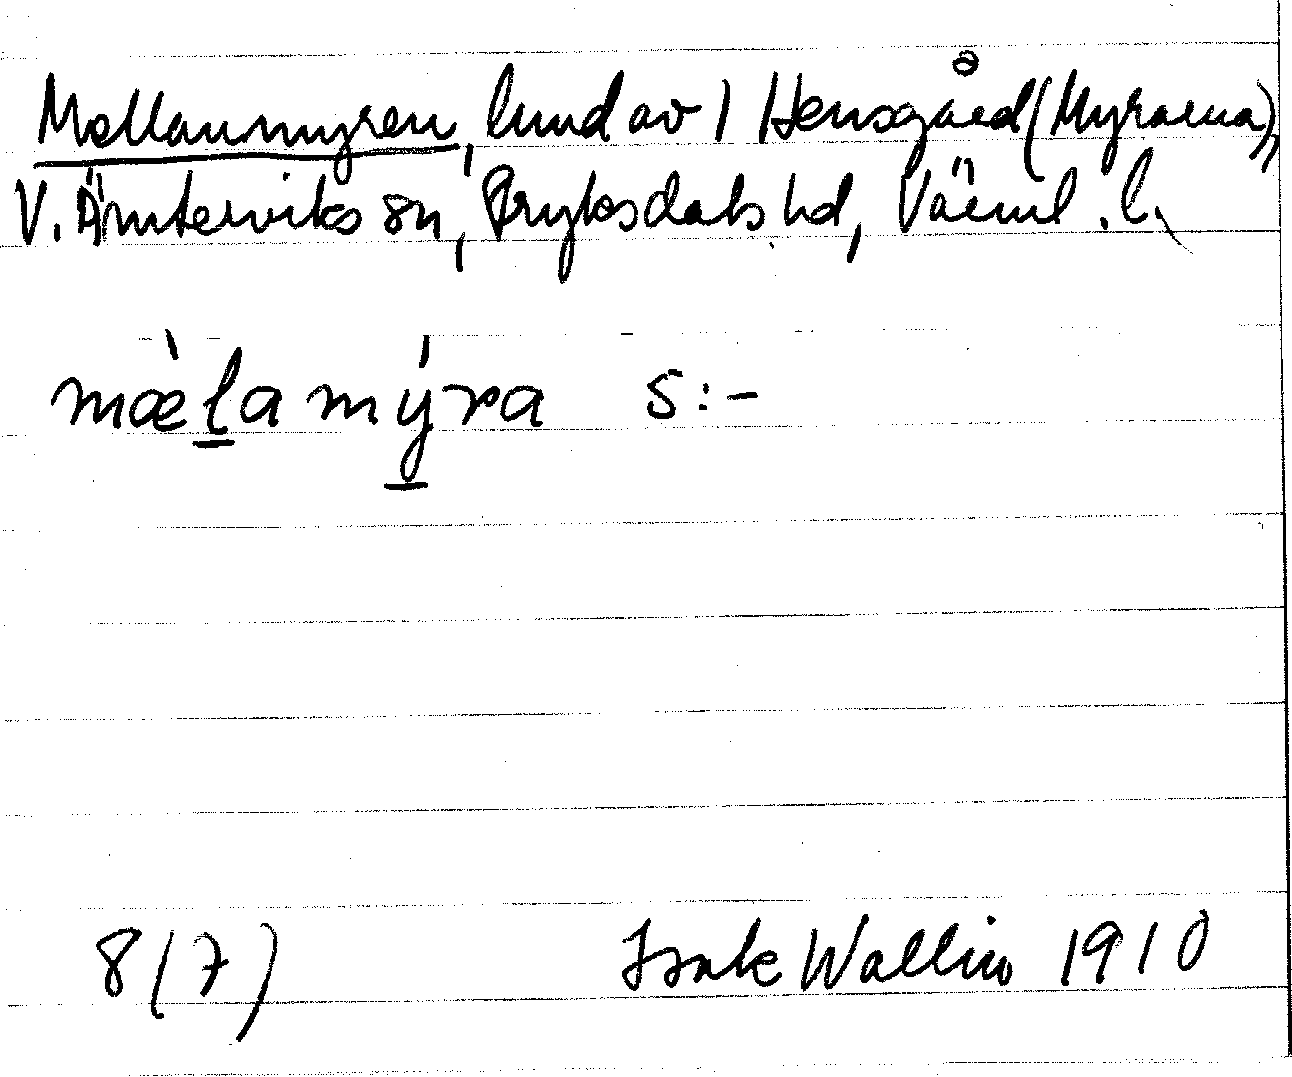 Mellanmyren, hmd av 1 Hensgård (Myrarna),
V. Ämterviks sn, Fryksdals hd, Värml. l.
mæ̀lamýra s:-
8 (7) Isak Wallin 1910